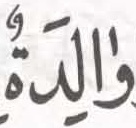 وَالِدَةٌ